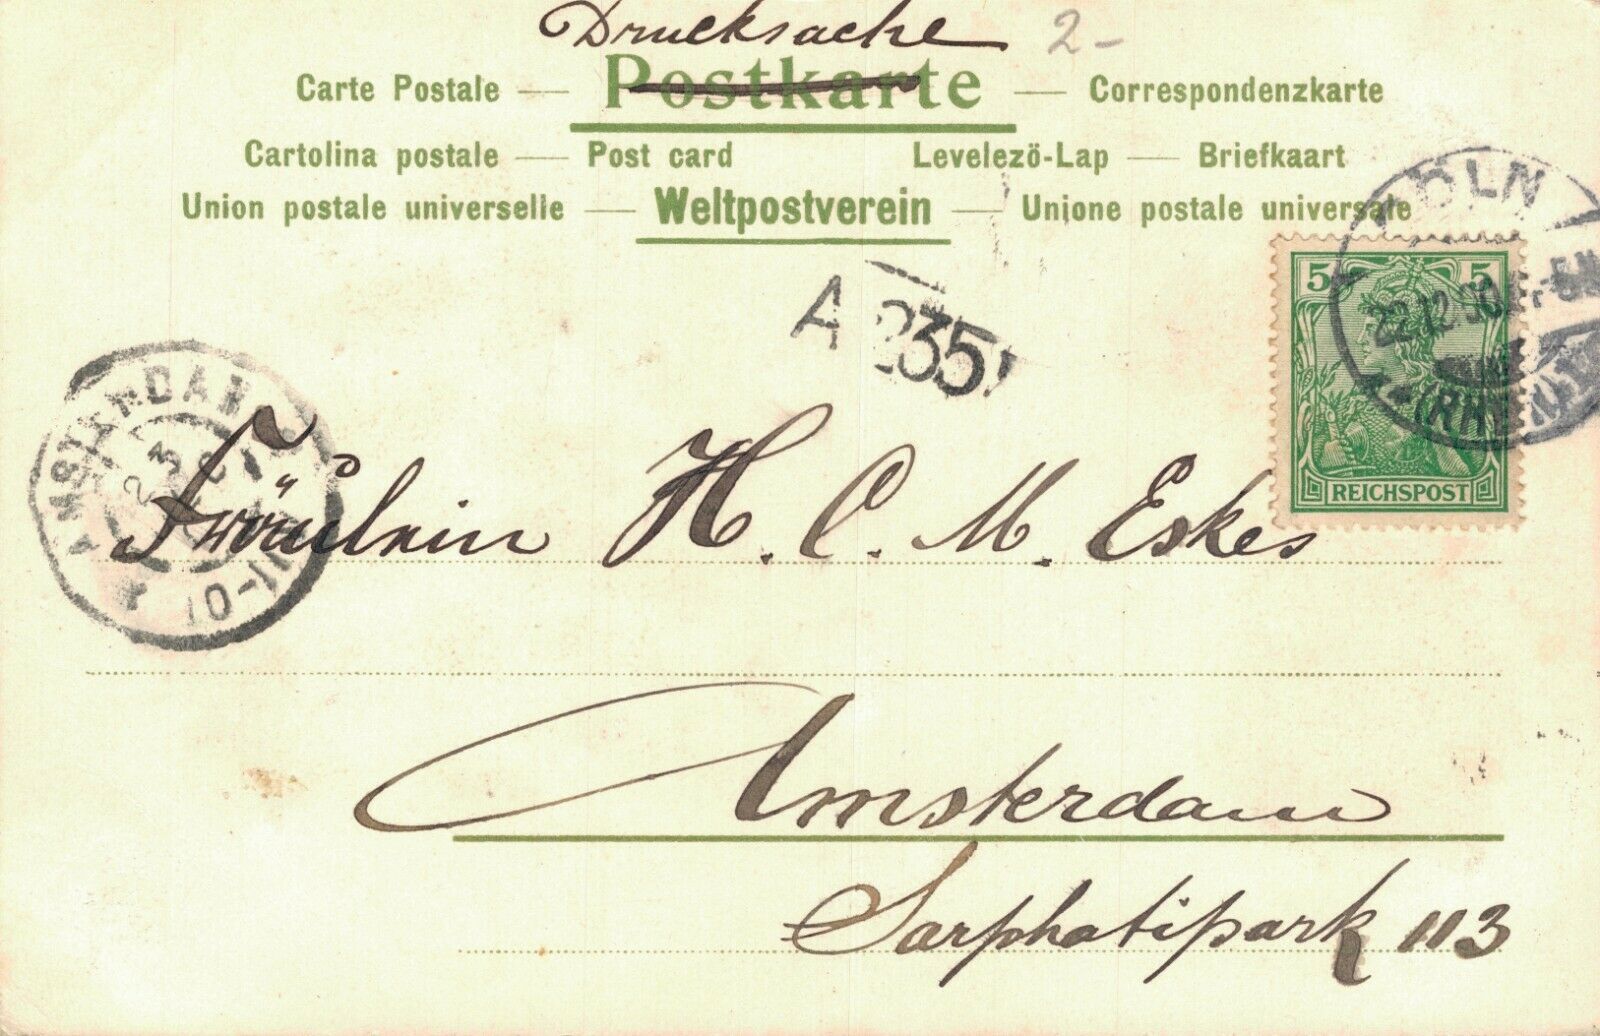 Drucksache 2-
Carte Postale — Postkarte — Correspondenzkarte
Cartolina postale — Post card Levelezö-Lap — Briefkaart
Union postale universelle — Weltpostverein — Unione postale universale
KÖLN
5 5
22.12.00
(RHEIN)
REICHSPOST
A 235
AMSTERDAM
23
10-11
Fräulein H. C. M. Eskes
Amsterdam
Sarphatipark 113